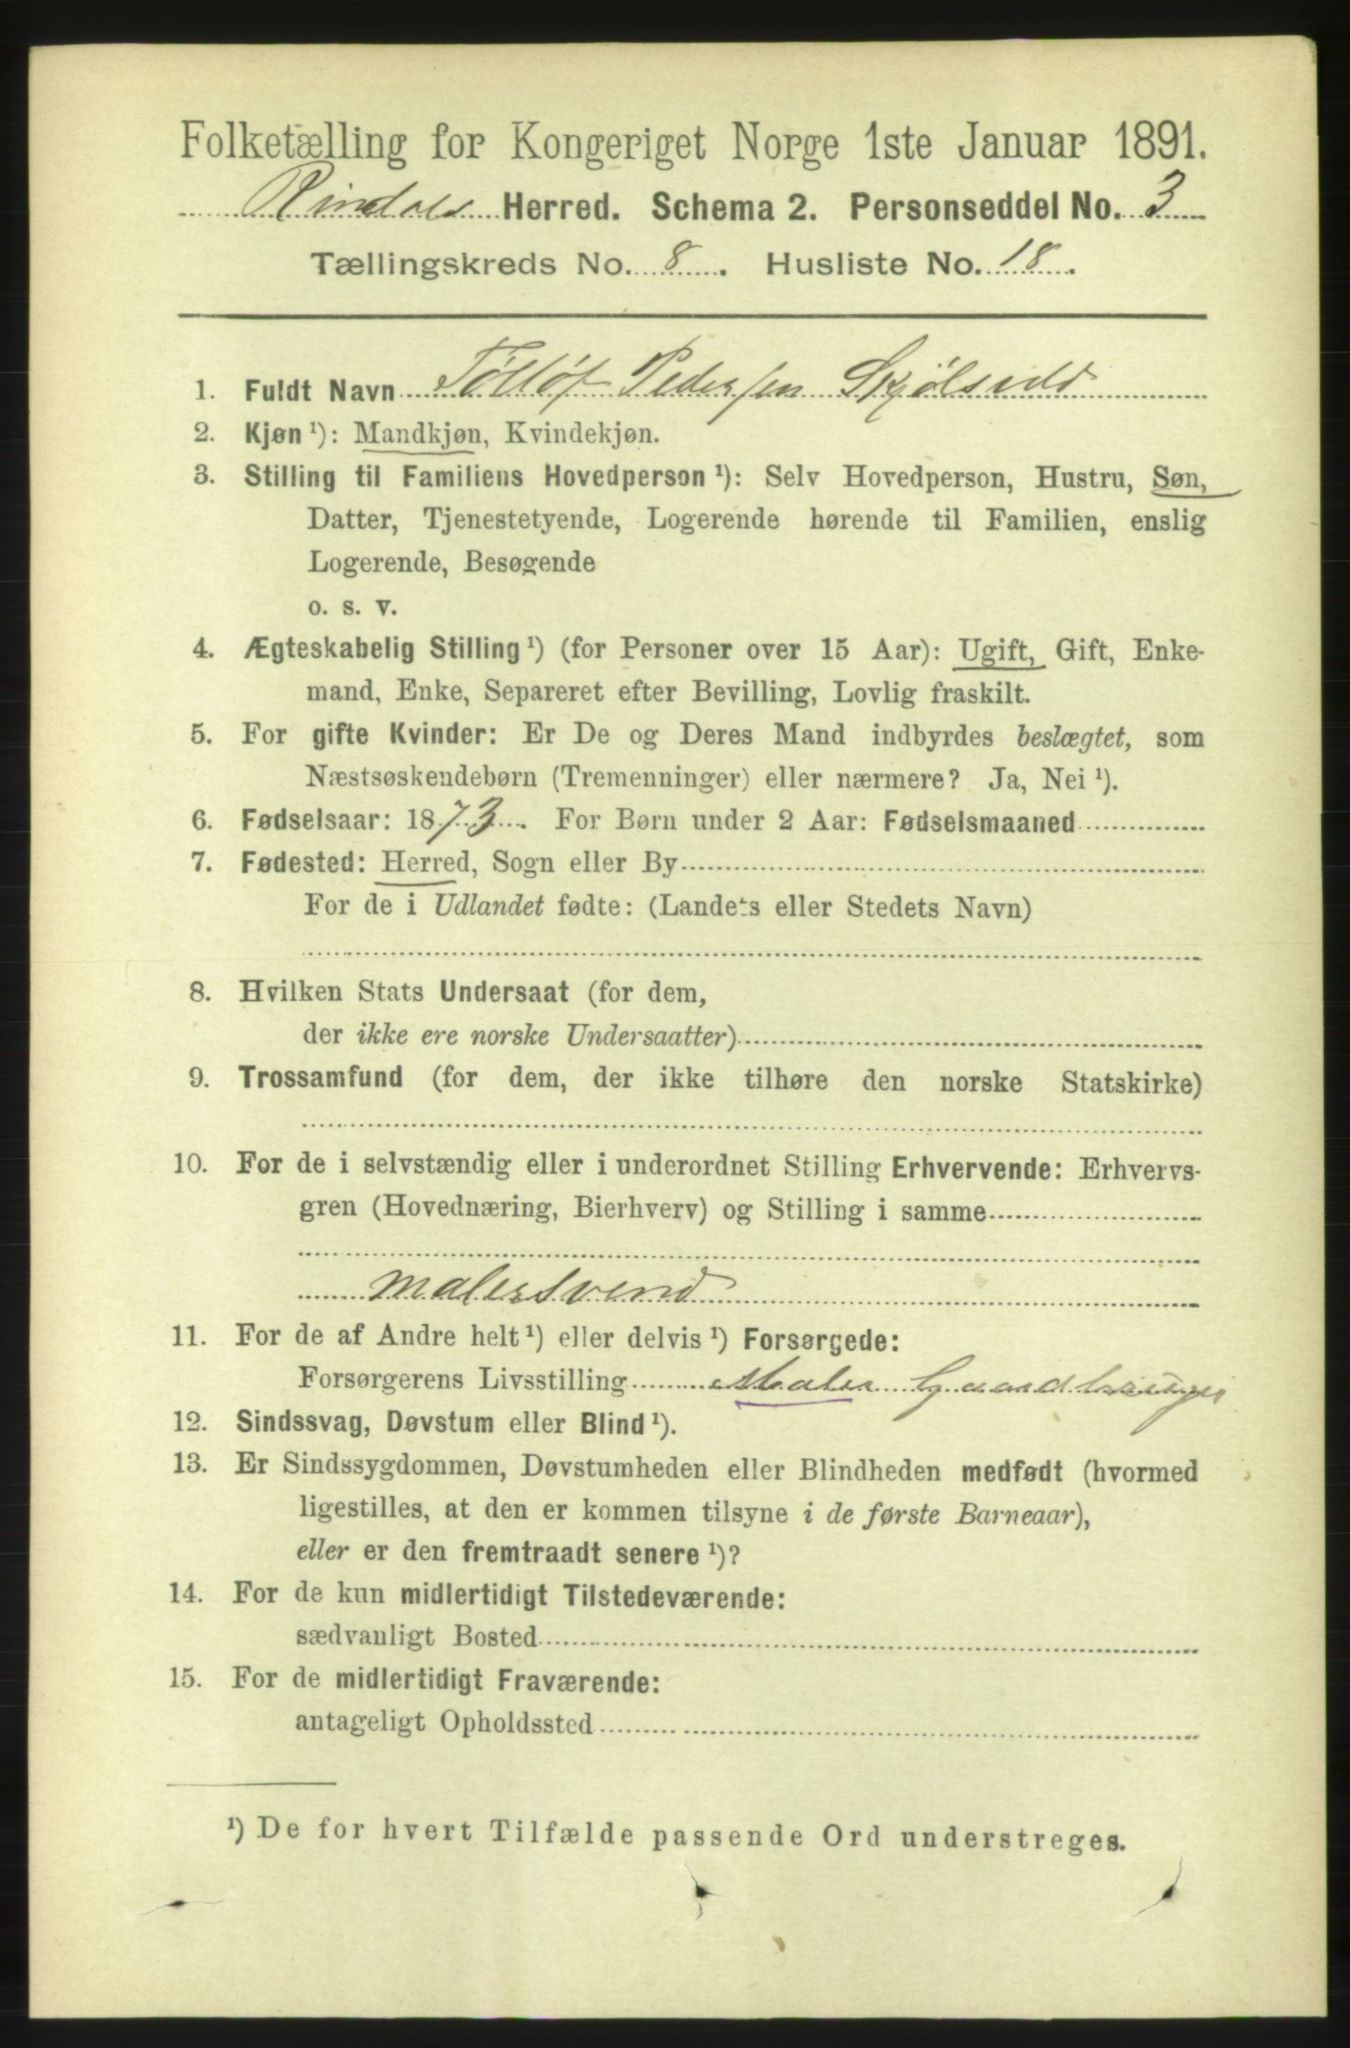 Folketælling for Kongeriget Norge 1ste Januar 1891.
Rindals Herred. Schema 2. Personseddel No. 3
Tællingskreds No. 8. Husliste No. 18.
1. Fuldt Navn Pedersen
2. Kjøn ¹): Mandkjøn, Kvindekjøn.
3. Stilling til Familiens Hovedperson ¹): Selv Hovedperson, Hustru, Søn,
Datter, Tjenestetyende, Logerende hørende til Familien, enslig
Logerende, Besøgende
o. s. v.
4. Ægteskabelig Stilling ¹) (for Personer over 15 Aar): Ugift, Gift, Enke-
mand, Enke, Separeret efter Bevilling, Lovlig fraskilt.
5. For gifte Kvinder: Er De og Deres Mand indbyrdes beslægtet, som
Næstsøskendebørn (Tremenninger) eller nærmere? Ja, Nei ¹).
6. Fødselsaar: 1873. For Børn under 2 Aar: Fødselsmaaned
7. Fødested: Herred, Sogn eller By
For de i Udlandet fødte: (Landets eller Stedets Navn)
8. Hvilken Stats Undersaat (for dem,
der ikke ere norske Undersaatter)
9. Trossamfund (for dem, der ikke tilhøre den norske Statskirke)
10. For de i selvstændig eller i underordnet Stilling Erhvervende: Erhvervs-
gren (Hovednæring, Bierhverv) og Stilling i samme
malersvend
11. For de af Andre helt ¹) eller delvis ¹) Forsørgede:
Forsørgerens Livsstilling Maler Gaardbruger
12. Sindssvag, Døvstum eller Blind ¹).
13. Er Sindssygdommen, Døvstumheden eller Blindheden medfødt (hvormed
ligestilles, at den er kommen tilsyne i de første Barneaar),
eller er den fremtraadt senere ¹)?
14. For de kun midlertidigt Tilstedeværende:
sædvanligt Bosted
15. For de midlertidigt Fraværende:
antageligt Opholdssted
¹) De for hvert Tilfælde passende Ord understreges.